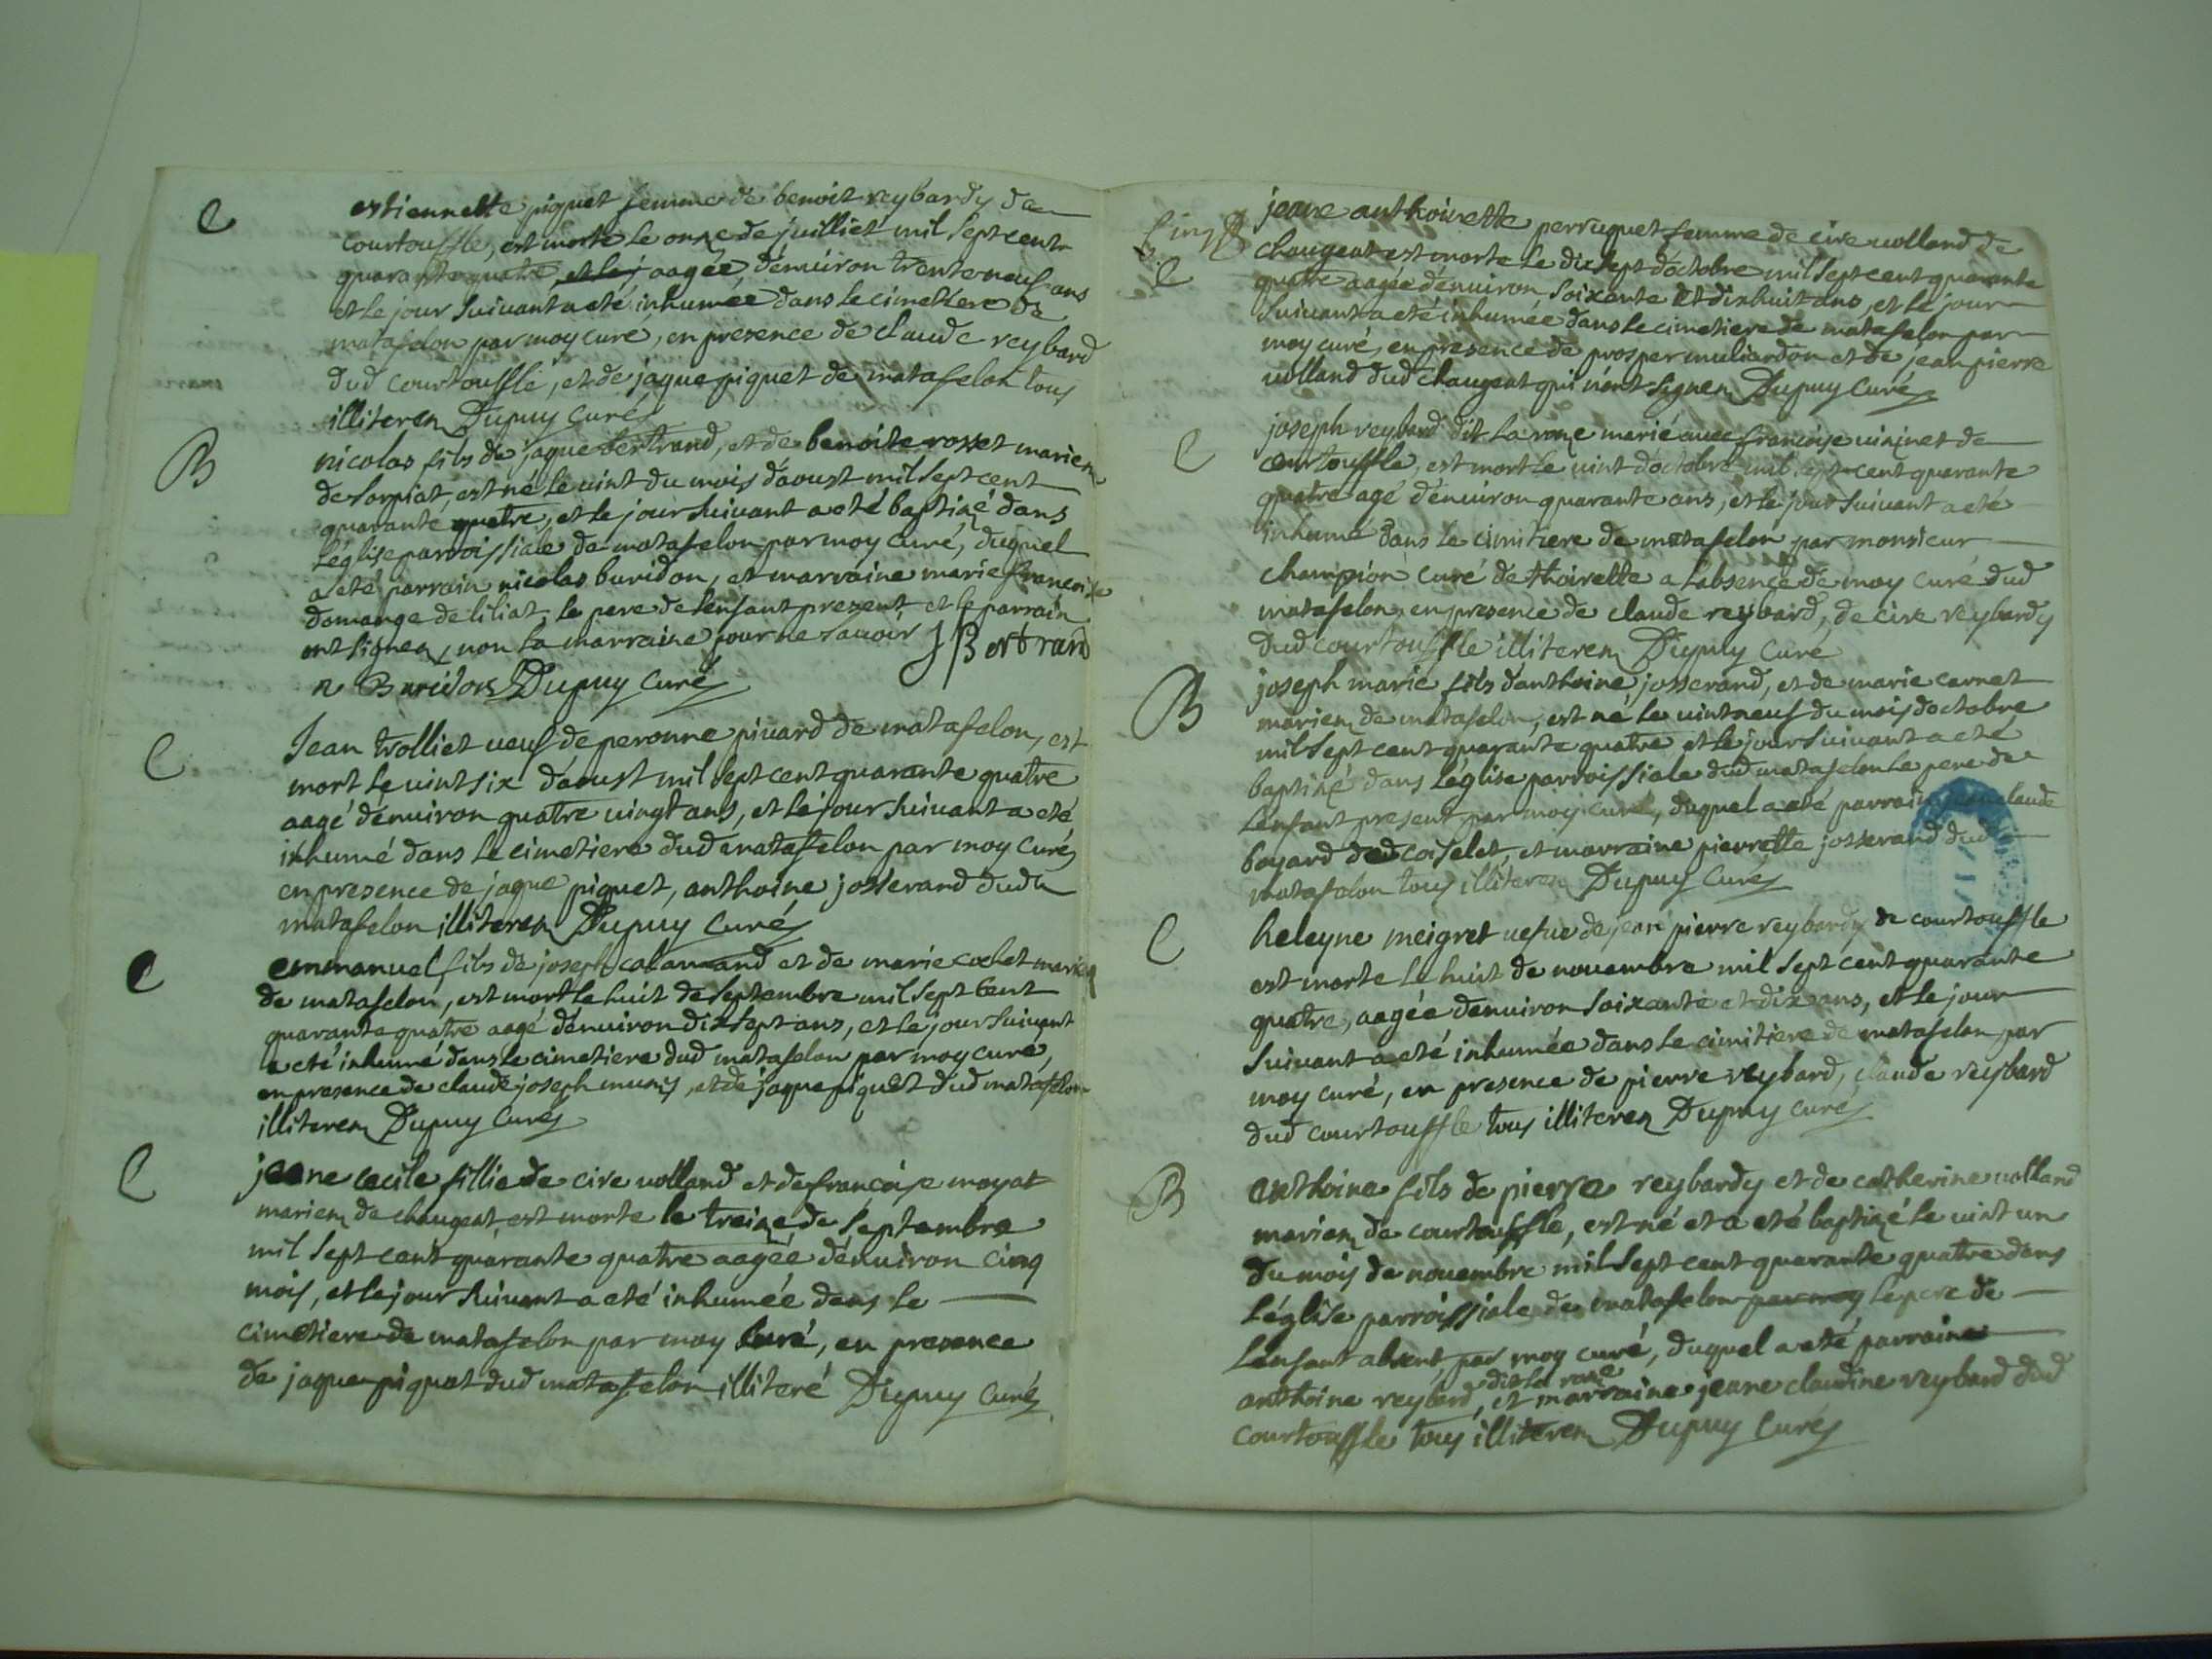 C
estiennette piquet femme de benoit reybardy de
courtouffle, est morte le onze de juilliet mil sept cent
quarante quatre, et le j aagée, d'enuiron trente neuf ans
et le jour suiuant a eté inhumée dans le cimetiere de
matafelon par moy curé, en presence de claude reybard
dud courtouffle, et de jaque piquet de matafelon tous
illiterez Dupuy curé
B
nicolas fils de jaque bertrand, et de benoite rosset mariez
de sorpiat, est né le uint du mois d'aoust mil sept cent
quarante quatre, et le jour suiuant a eté baptizé dans
L'église parroissiale de matafelon par moy curé, duquel
a eté parrain nicolas buridon, et marraine marie francoise
domange de liliat, le pere de lenfant present et le parrain
ont signez, non la marraine pour ne sauoir J Bertrand
n Buridon Dupuy curé
C
Jean trolliet ueuf de peronne piuard de matafelon, est
mort le uint six d'aoust mil sept cent quarante quatre
aagé d'enuiron quatre uingt ans, et le jour suiuant a eté
inhumé dans le cimetiere dud matafelon par moy curé
en presence de jaque piquet, anthoine josserand dud
matafelon illiterez Dupuy curé
C
emmanuel fils de joseph calamand et de marie cochet mariez
de matafelon, est mort le huit de septembre mil sept cent
quarante quatre aagé d'enuiron dix sept ans, et le jour suiuant
a eté inhumé dans le cimetiere dud matafelon par moy curé,
en presence de claude joseph , et de jaque piquet dud matafelon
illiterez Dupuy curé
C
jeane cecile fillie de cire uolland et de francoise moyat
mariez de chaugeat, est morte le treize de septembre
mil sept cent quarante quatre aagée d'enuiron cinq
mois, et le jour suiuant a eté inhumée dans le
cimetiere de matafelon par moy curé, en presence
de jaque piquet dud matafelon illiteré Dupuy curé
C
jeane anthoinette perruquet femme de cire uolland de
chaugeat est morte le dix sept d'octobre mil sept cent quarante
quatre aagée d'enuiron soixante et dix huit ans, et le jour
suiuant a eté inhumée dans le cimetiere de matafelon par
moy curé, en presence de prosper muliardon et de jean pierre
uolland dud chaugeat qui n'ont signez Dupuy curé
C
joseph reybard dit la roze marié auec francoise de
courtouffle, est mort le uint d'octobre mil sept cent quarante
quatre agé d'enuiron quarante ans, et le jour suiuant a eté
inhumé dans le cimitiere de matafelon par monsieur
champion curé de thoirette a l'absence de moy curé dud
matafelon, en presence de claude reybard, de cire reybardy
dud courtouffle illiterez Dupuy curé
B
joseph marie fils d'anthoine josserand, et de marie carnet
mariez de matafelon, est né le uintneuf du mois d'octobre
mil sept cent quarante quatre et le jour suiuant a eté
baptizé dans L'église parroissiale dud matafelon le pere de
Lenfant present par moy curé, duquel a eté parrain claude
boyard de coiselet, et marraine pierrette josserand dud
matafelon tous illiterez Dupuy curé
C
heleyne meigret uefue de jean pierre reybardy de courtouffle
est morte le huit de nouembre mil sept cent quarante
quatre, aagée denuiron soixante et dix ans, et le jour
suiuant a eté inhumée dans le cimitiere de matafelon par
moy curé, en presence de pierre reybard, claude reybard
dud courtouffle tous illiterez Dupuy curé
B
anthoine fils de pierre reybardy et de catherine uolland
mariez de courtouffle, est né et a eté baptizé le uint un
du mois de nouembre mil sept cent quarante quatre dans
L'église parroissiale de matafelon par moy le pere de
Lenfant absent, par moy curé, duquel a eté parraine
dit la roze
anthoine reybard, et marraine jeane claudine reybard dud
courtouffle tous illiterez Dupuy curé